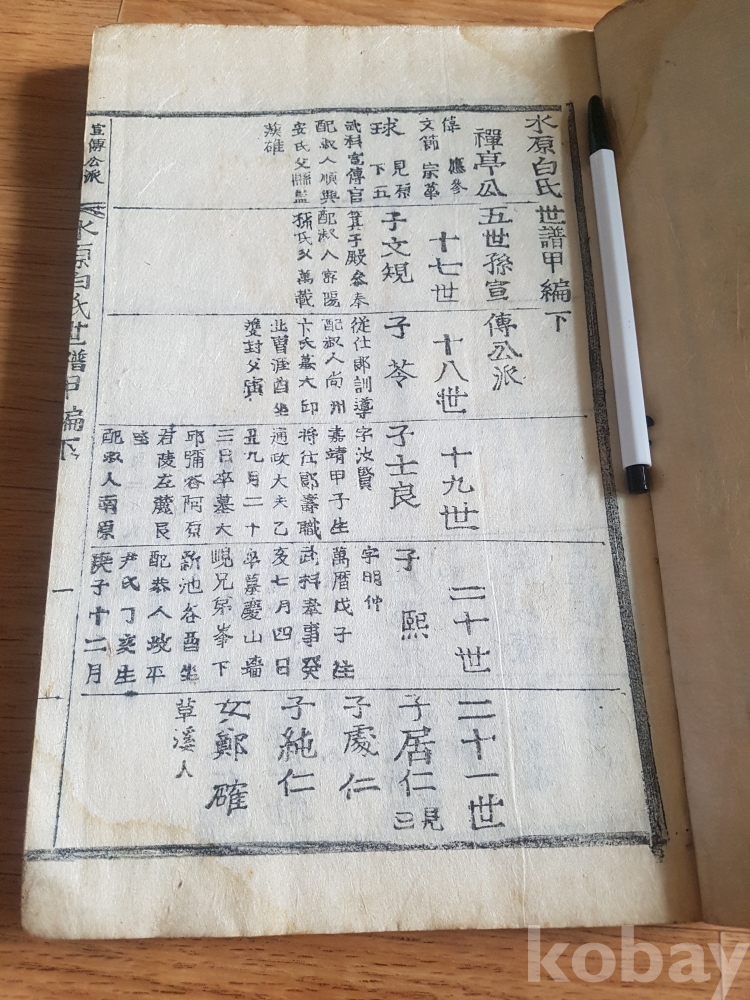 水原白氏世譜甲編下
禪亭公五世孫宣傳公派
偉 應參
文節 宗革
球 見禎
下五
武科宣傳官
配淑人順興
安氏父縣監
漢碓
十七世
子文規
箕子殿參奉
配淑人密陽
孫氏父萬載
十八世
子苓
從仕郎訓導
配淑人尚州
卞氏墓大邱
北冒涯酉坐
雙封父寅
十九世
子士良
字汝賢
嘉靖甲子生
將仕郎壽職
通政大夫乙
丑九月二十
三日卒墓大
邱彌谷阿原
若陵左麓艮
坐
配淑人南原
二十世
子熙
字明仲
萬曆戊子生
武科奉事癸
亥七月四日
卒墓慶山墻
峴兄弟峯下
新池谷酉坐
配恭人坡平
尹氏丁亥生
庚子十二月
二十一世
子居仁 見三
子處仁
子純仁
女鄭確
草溪人
宣傳公派
水原白氏世譜甲編下
一
kobay